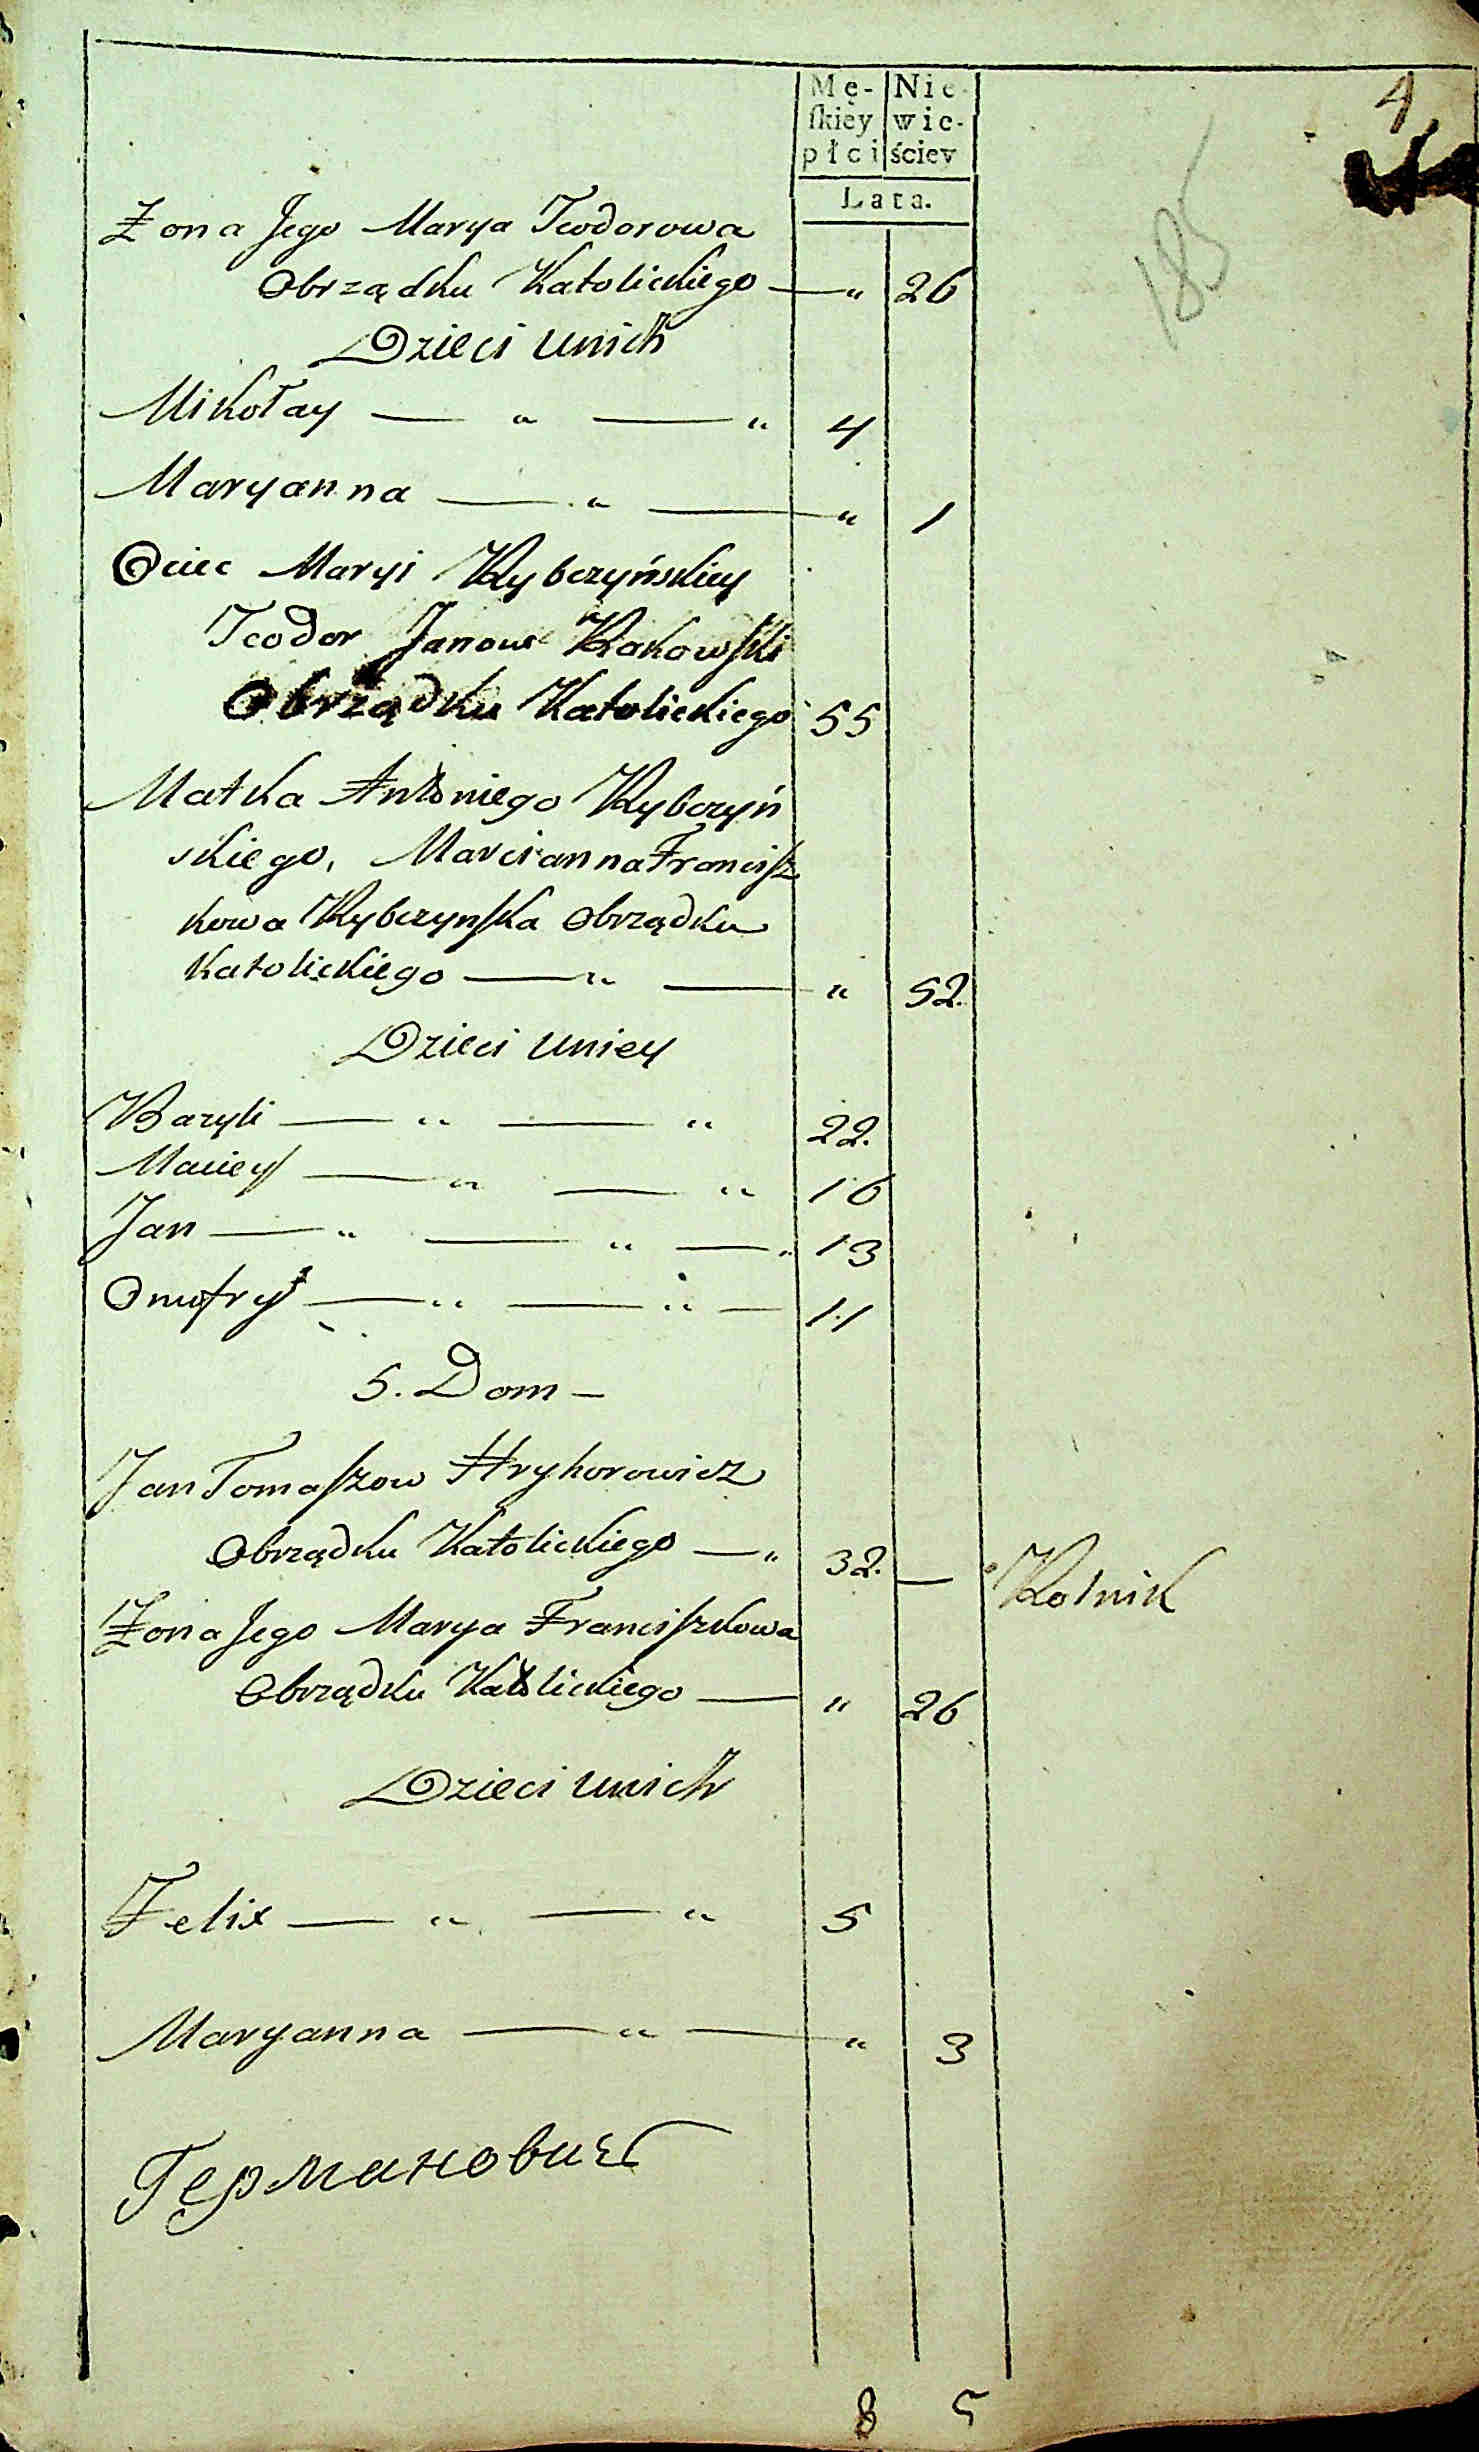 Mę- Nie-
skiéy wie-
płci ściey
Lata.
4
185
Żona Jego Marya Teodorowa
Obrządku Katolickiego — " 26
Dzieci unich
Mikołay — " — " 4
Maryanna — " — " 1
Ociec Maryi Rybczyńskiey
Teodor Janow Rakowski
Obrządku Katolickiego 55
Matka Antoniego Rybczyń
skiego, Marcianna Francisz
kowa Rybczynska Obrządku
Katolickiego — " — " 52.
Dzieci uniey
Bazyli — " — " 22.
Maciey — " — " 16
Jan — " — " — " 13
Onufry — " — " — 11
5. Dom —
Jan Tomaszow Hryhorowicz
Obrządku Katolickiego — " 32. — Rolnik
Żona Jego Marya Franciszkowa
Obrządku Katolickiego — " 26
Dzieci unich
Felix — " — " 5
Maryanna — " — " 3
8 5